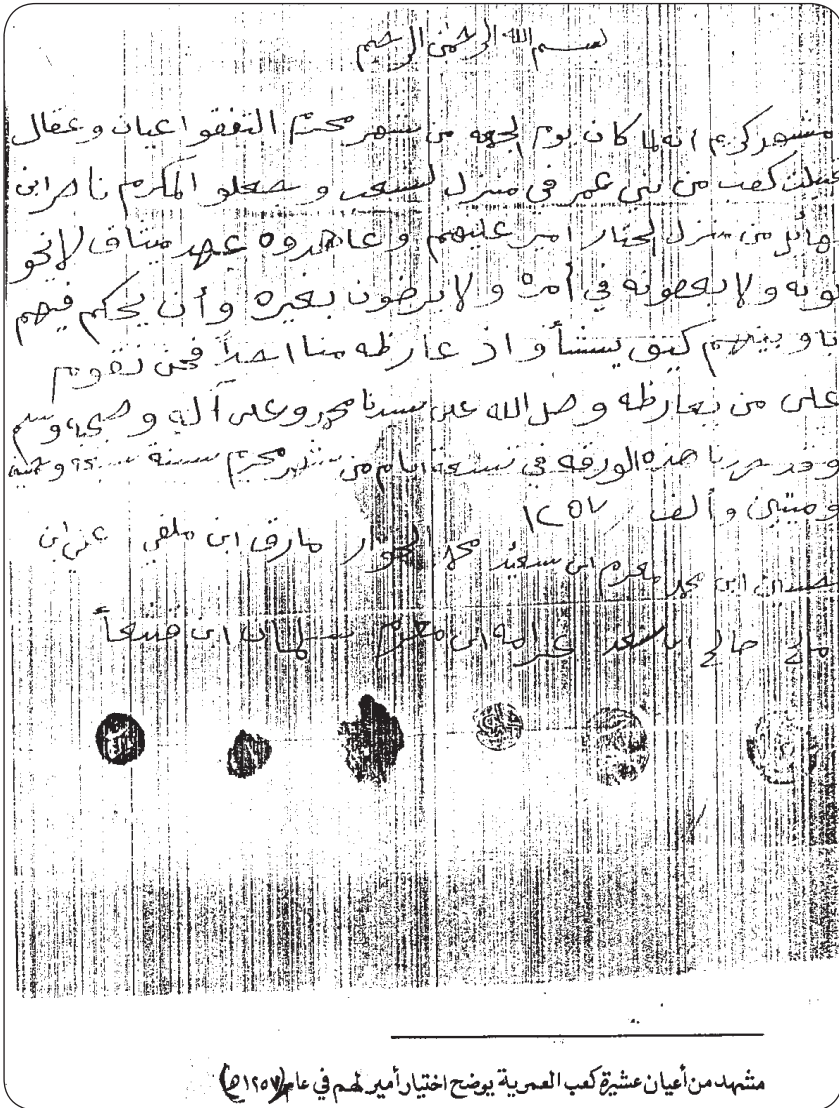 بسم الله الرحمن الرحيم
مشهد كريم انه لما كان يوم الجمعه من شهر محرم التفقوا عيان وعقال
كعب من بني عمر في منزل لشعب وجعلو المكرم ناصر ابن
هائل من منزل الجنار امير عليهم وعاهدوه عهد ميثاق لانخو
نونه ولا نعصونه في أمره ولا يرضون بغيره وأن يحكم فيهم
نا وبينهم كيق يشأ واذ عارظه منا احداً فحن نقوم
على من يعارظه وصل الله على سيدنا محمد وعلى آله وصحبه وسم
وقد حررنا هذه الورقه في تسعة ايام من شهر محرم سنة سبعه
وميتين وألف ١٢٥٧
ابن محمد معرم ابن سعيد محمد الجوار مارق ابن ملفي علي ابن
صالح ابن سعد عرامه ابن معرم سلمان ابن
مشهد من أعيان عشيرة كعب العمرية يوضح اختيار أمير لهم في عام (١٢٥٧ه)